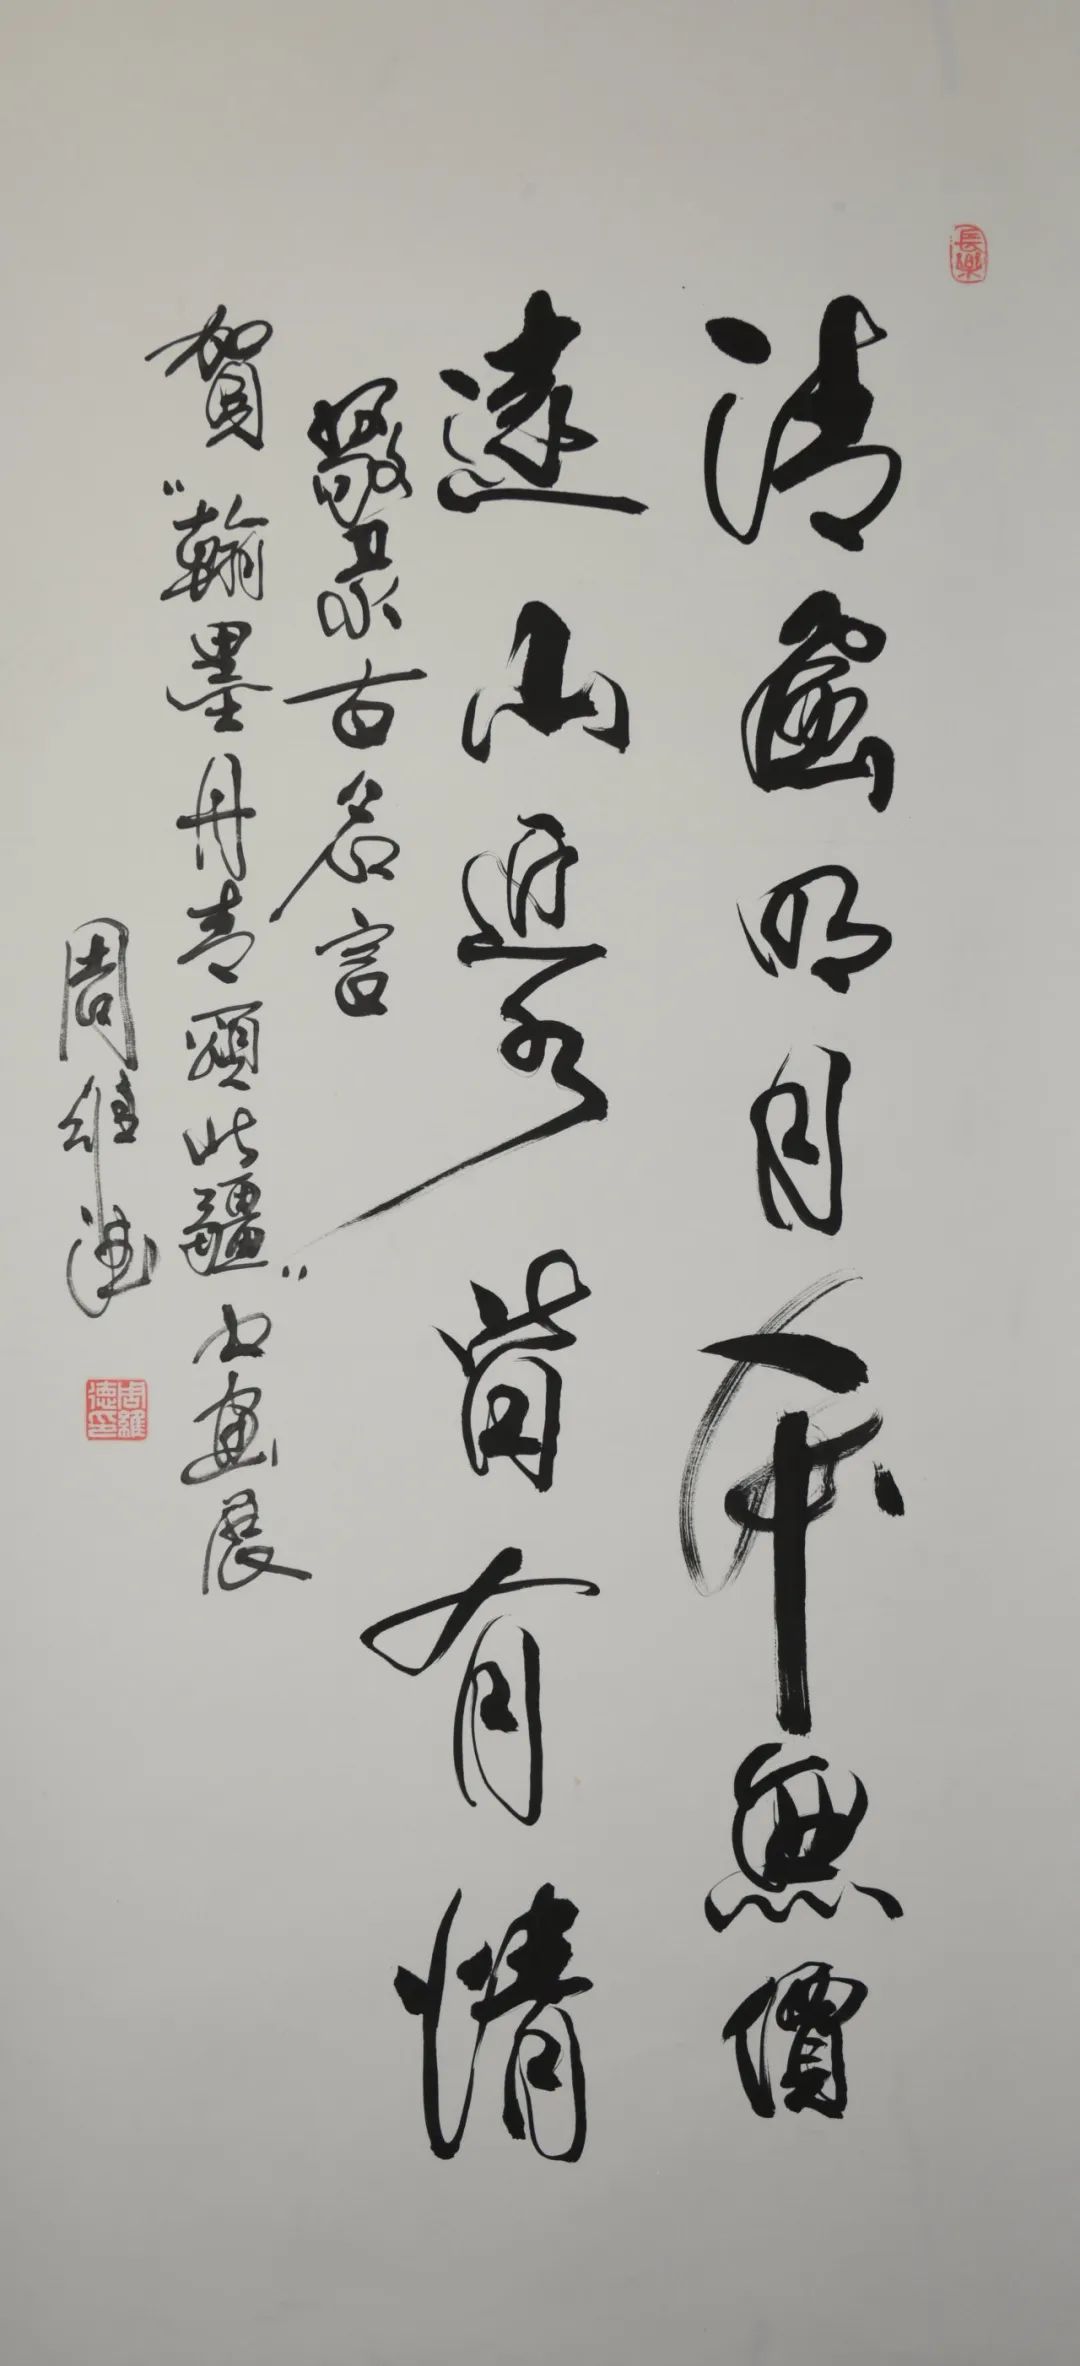 長樂
清風明月本無價
遠山近水皆有情
敬录古名言
賀“翰墨丹青頌北疆”书画展
周维德
周維德印